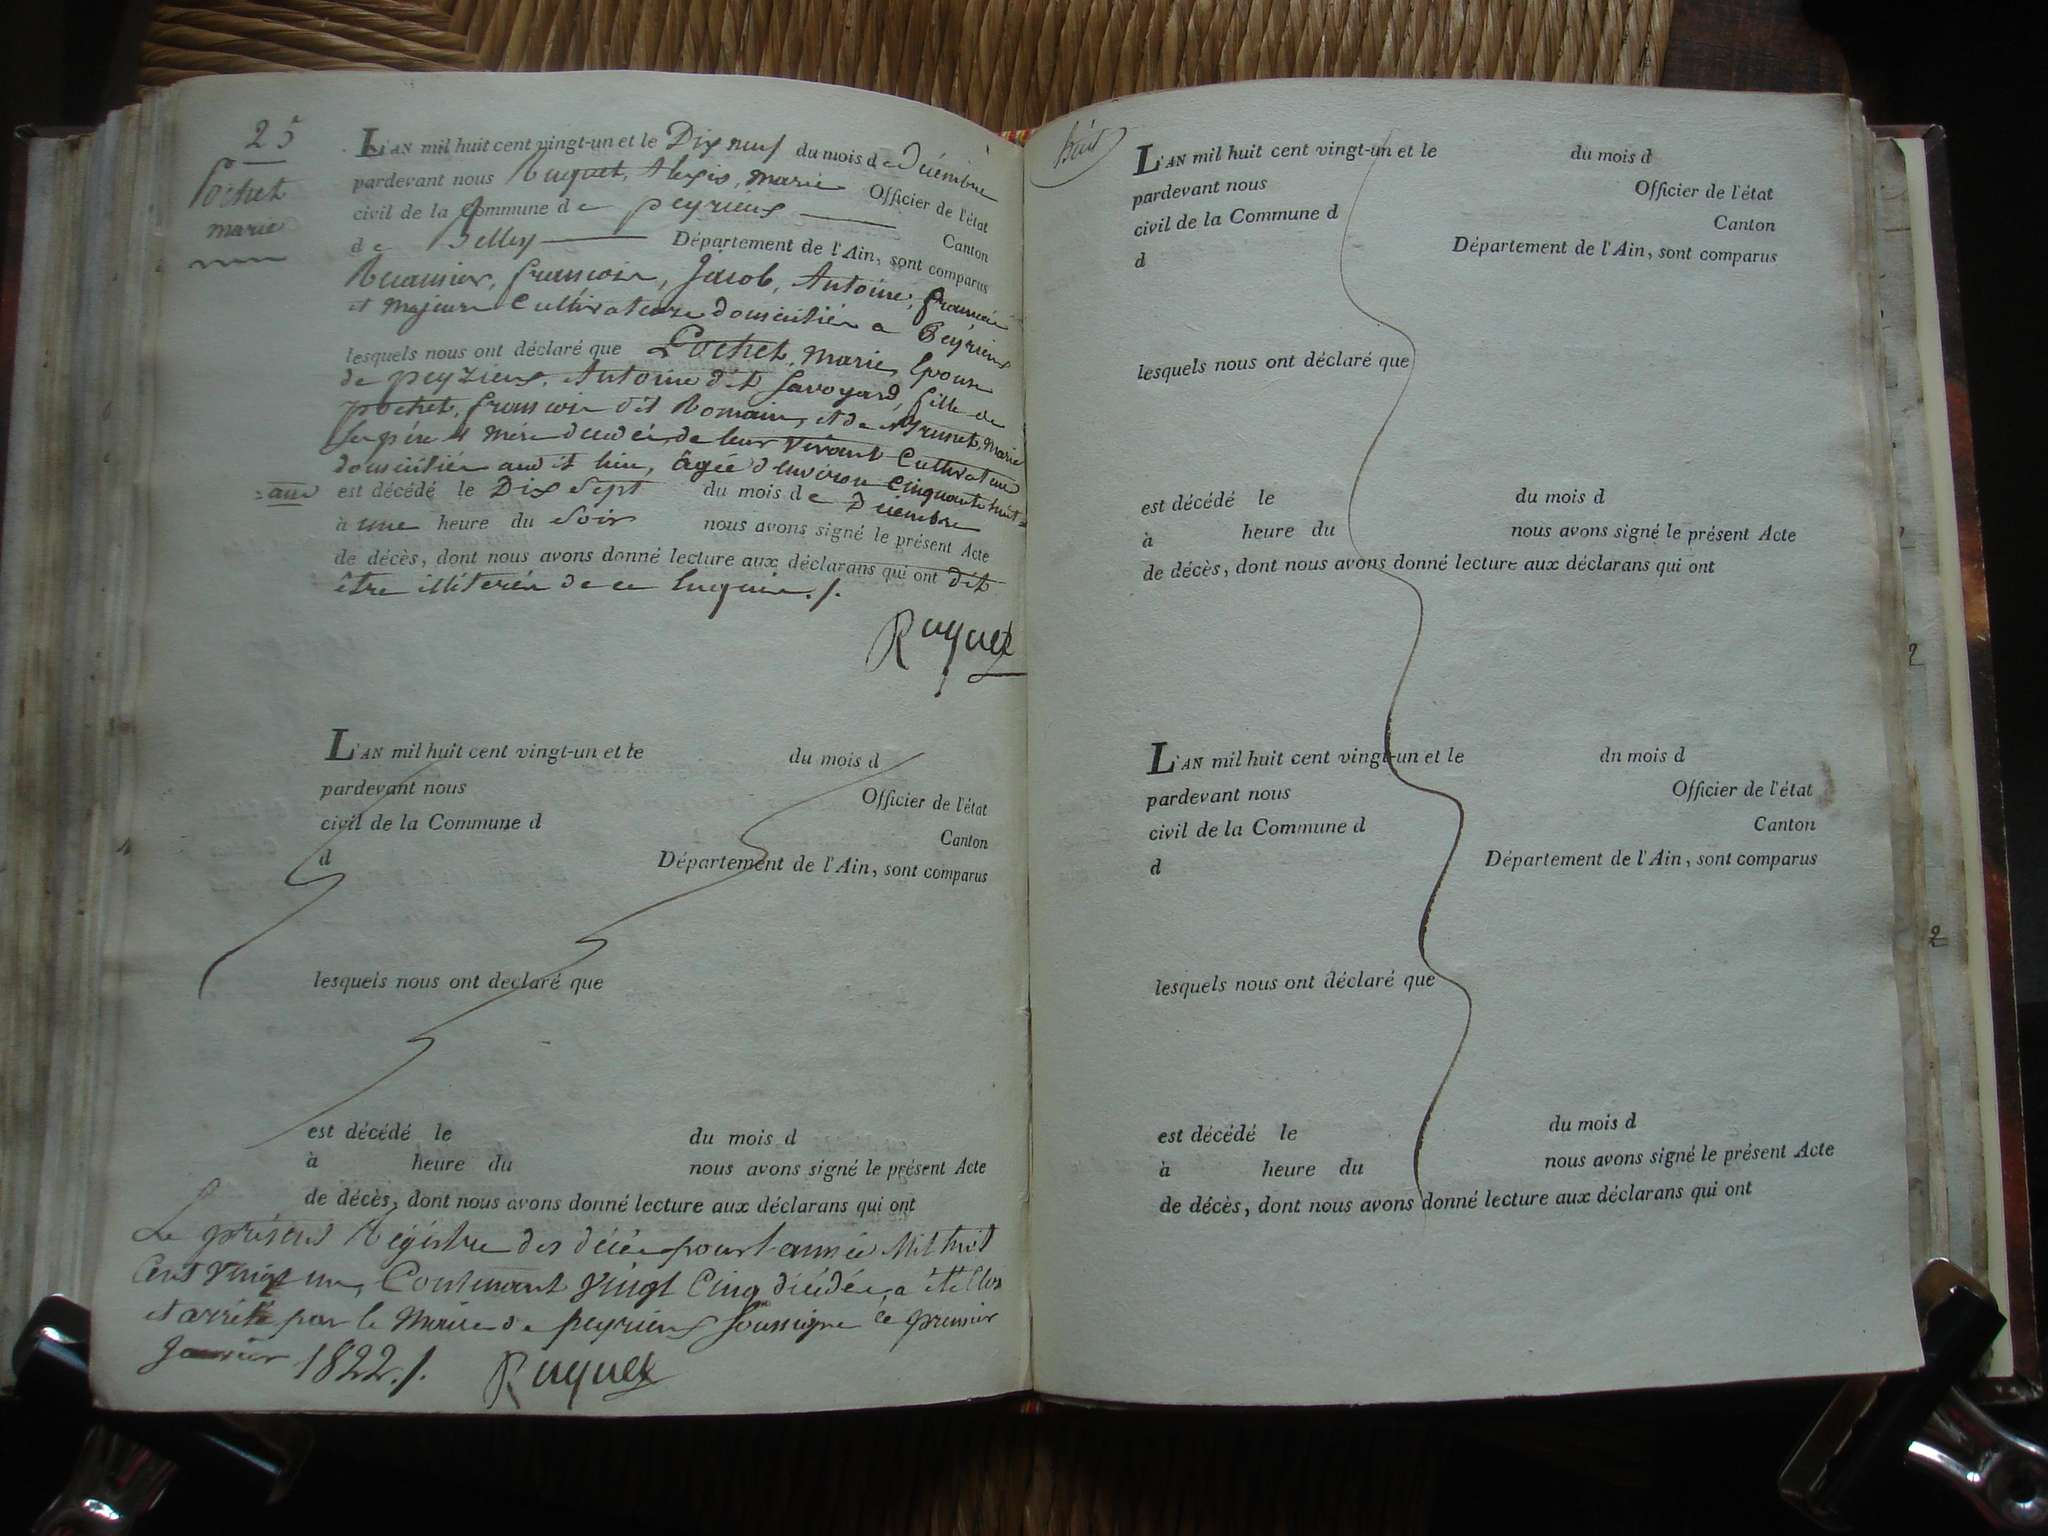 25
Pochet
marie
L'AN mil huit cent vingt-un et le Dix neuf du mois de Décémbre
pardevant nous Ruquet, Alexis, marie Officier de l'état
civil de la Commune de peyrieux Canton
de Belley Département de l'Ain, sont comparus
françois, Jacob, Antoine, françois
et majeurs Cultivateurs domiciliés a Peyrieux
lesquels nous ont déclaré que Pochet, marie, Epouse
de peyzieux, Antoine dit Savoyard, fille de
pochet, françois dit Romain, et de Brunet, marie
ses père et mère décédés, de leur vivant Cultivateurs
domiciliés audit lieu, âgée d'environ cinquante huit
ans est décédé le Dix Sept du mois de Décembre
à une heure du Soir nous avons signé le présent Acte
de décès, dont nous avons donné lecture aux déclarans qui ont dit
être illiterés de ce Enquis./.
Ruquet
L'AN mil huit cent vingt-un et le du mois d
pardevant nous Officier de l'état
civil de la Commune d Canton
d Département de l'Ain, sont comparus
lesquels nous ont declaré que
est décédé le du mois d
à heure du nous avons signé le présent Acte
de décès, dont nous avons donné lecture aux déclarans qui ont
Le présent Régistre des décés pour l'année Mil huit
Cent vingt un, Contenant vingt Cinq décédés, a été Clos
et arrêté par le Maire de peyrieux Soussigné le premier
Janvier 1822./. Ruquet
L'AN mil huit cent vingt-un et le du mois d
pardevant nous Officier de l'état
civil de la Commune d Canton
d Département de l'Ain, sont comparus
lesquels nous ont déclaré que
est décédé le du mois d
à heure du nous avons signé le présent Acte
de décès, dont nous avons donné lecture aux déclarans qui ont
L'AN mil huit cent vingt-un et le dn mois d
pardevant nous Officier de l'état
civil de la Commune d Canton
d Département de l'Ain, sont comparus
lesquels nous ont déclaré que
est décédé le du mois d
à heure du nous avons signé le présent Acte
de décès, dont nous avons donné lecture aux déclarans qui ont
2
2